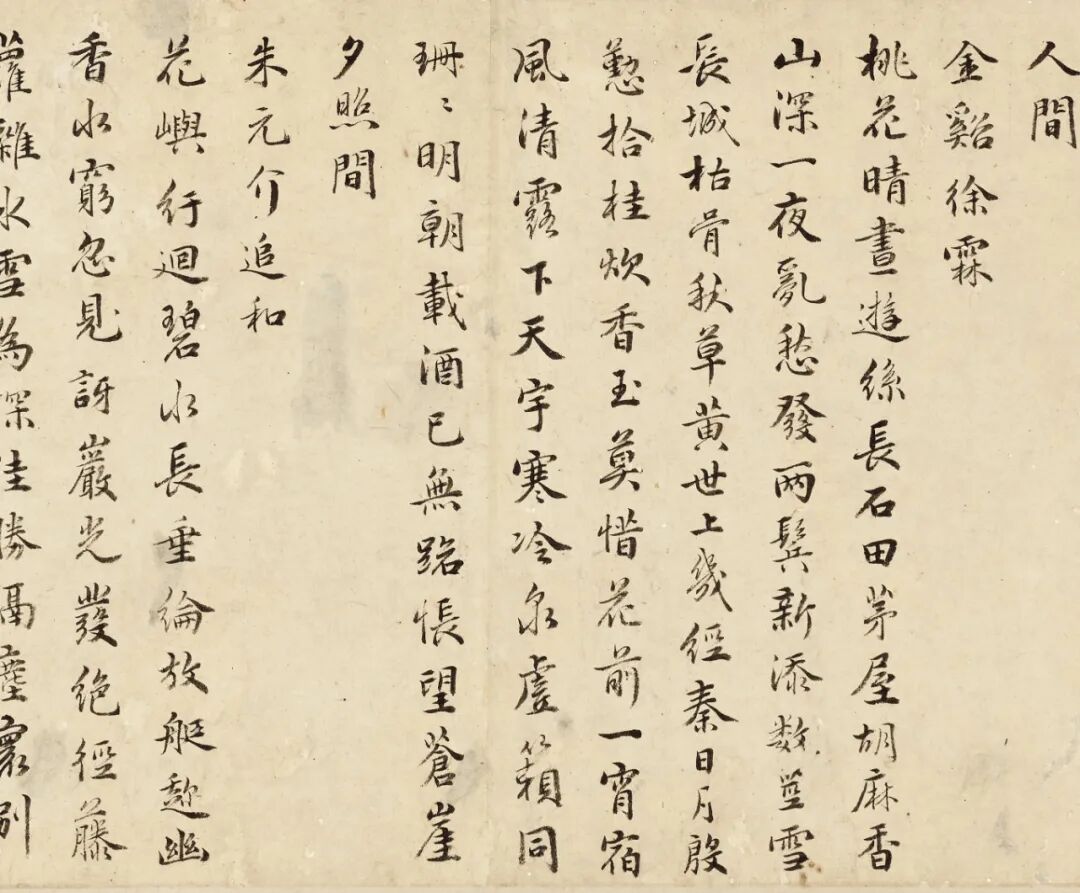 人間
金谿徐霖
桃花晴晝遊絲長石田茅屋胡麻香
山深一夜亂愁發兩鬂新添數莖雪
長城枯骨秋草黃世上幾經秦日月殷
懃拾桂炊香玉莫惜花前一宵宿
風清露下天宇寒冷泉虛籟同
珊〻明朝載酒已無路悵望蒼崖
夕照間
朱元介追和
花嶼行迴碧水長垂綸放艇趁幽
香水窮忽見訝巖光發絕徑藤
蘿雜水雪為深佳勝隔塵寰別